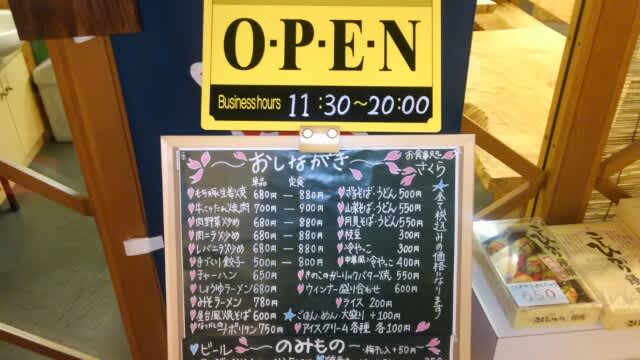 O·P·E·N
Business hours 11:30~20:00
おしながき
お食事処 さくら
単品 定食
もち豚生姜焼 680円 — 880円
牛にんにく焼肉 700円 — 900円
肉野菜炒め 680円 — 880円
肉ニラ炒め 680円 — 880円
レバニラ炒め 680円 — 880円
手づくり餃子 500円 — 800円
チャーハン 650円
しょうゆラーメン 680円
みそラーメン 780円
屋台風焼そば 600円
なつかしのナポリタン 750円
そば・うどん 500円
山菜そば・うどん 550円
月見そば・うどん 550円
枝豆 300円
冷やっこ 300円
中華風冷やっこ 400円
きのこのガーリックバター焼 550円
ウィンナー盛り合わせ 600円
ライス 200円
★ごはん・めん 大盛り +100円
アイスクリーム各種 各100円
★全て税込みの価格になります
のみもの
ビール
梅干し入 +50円
550